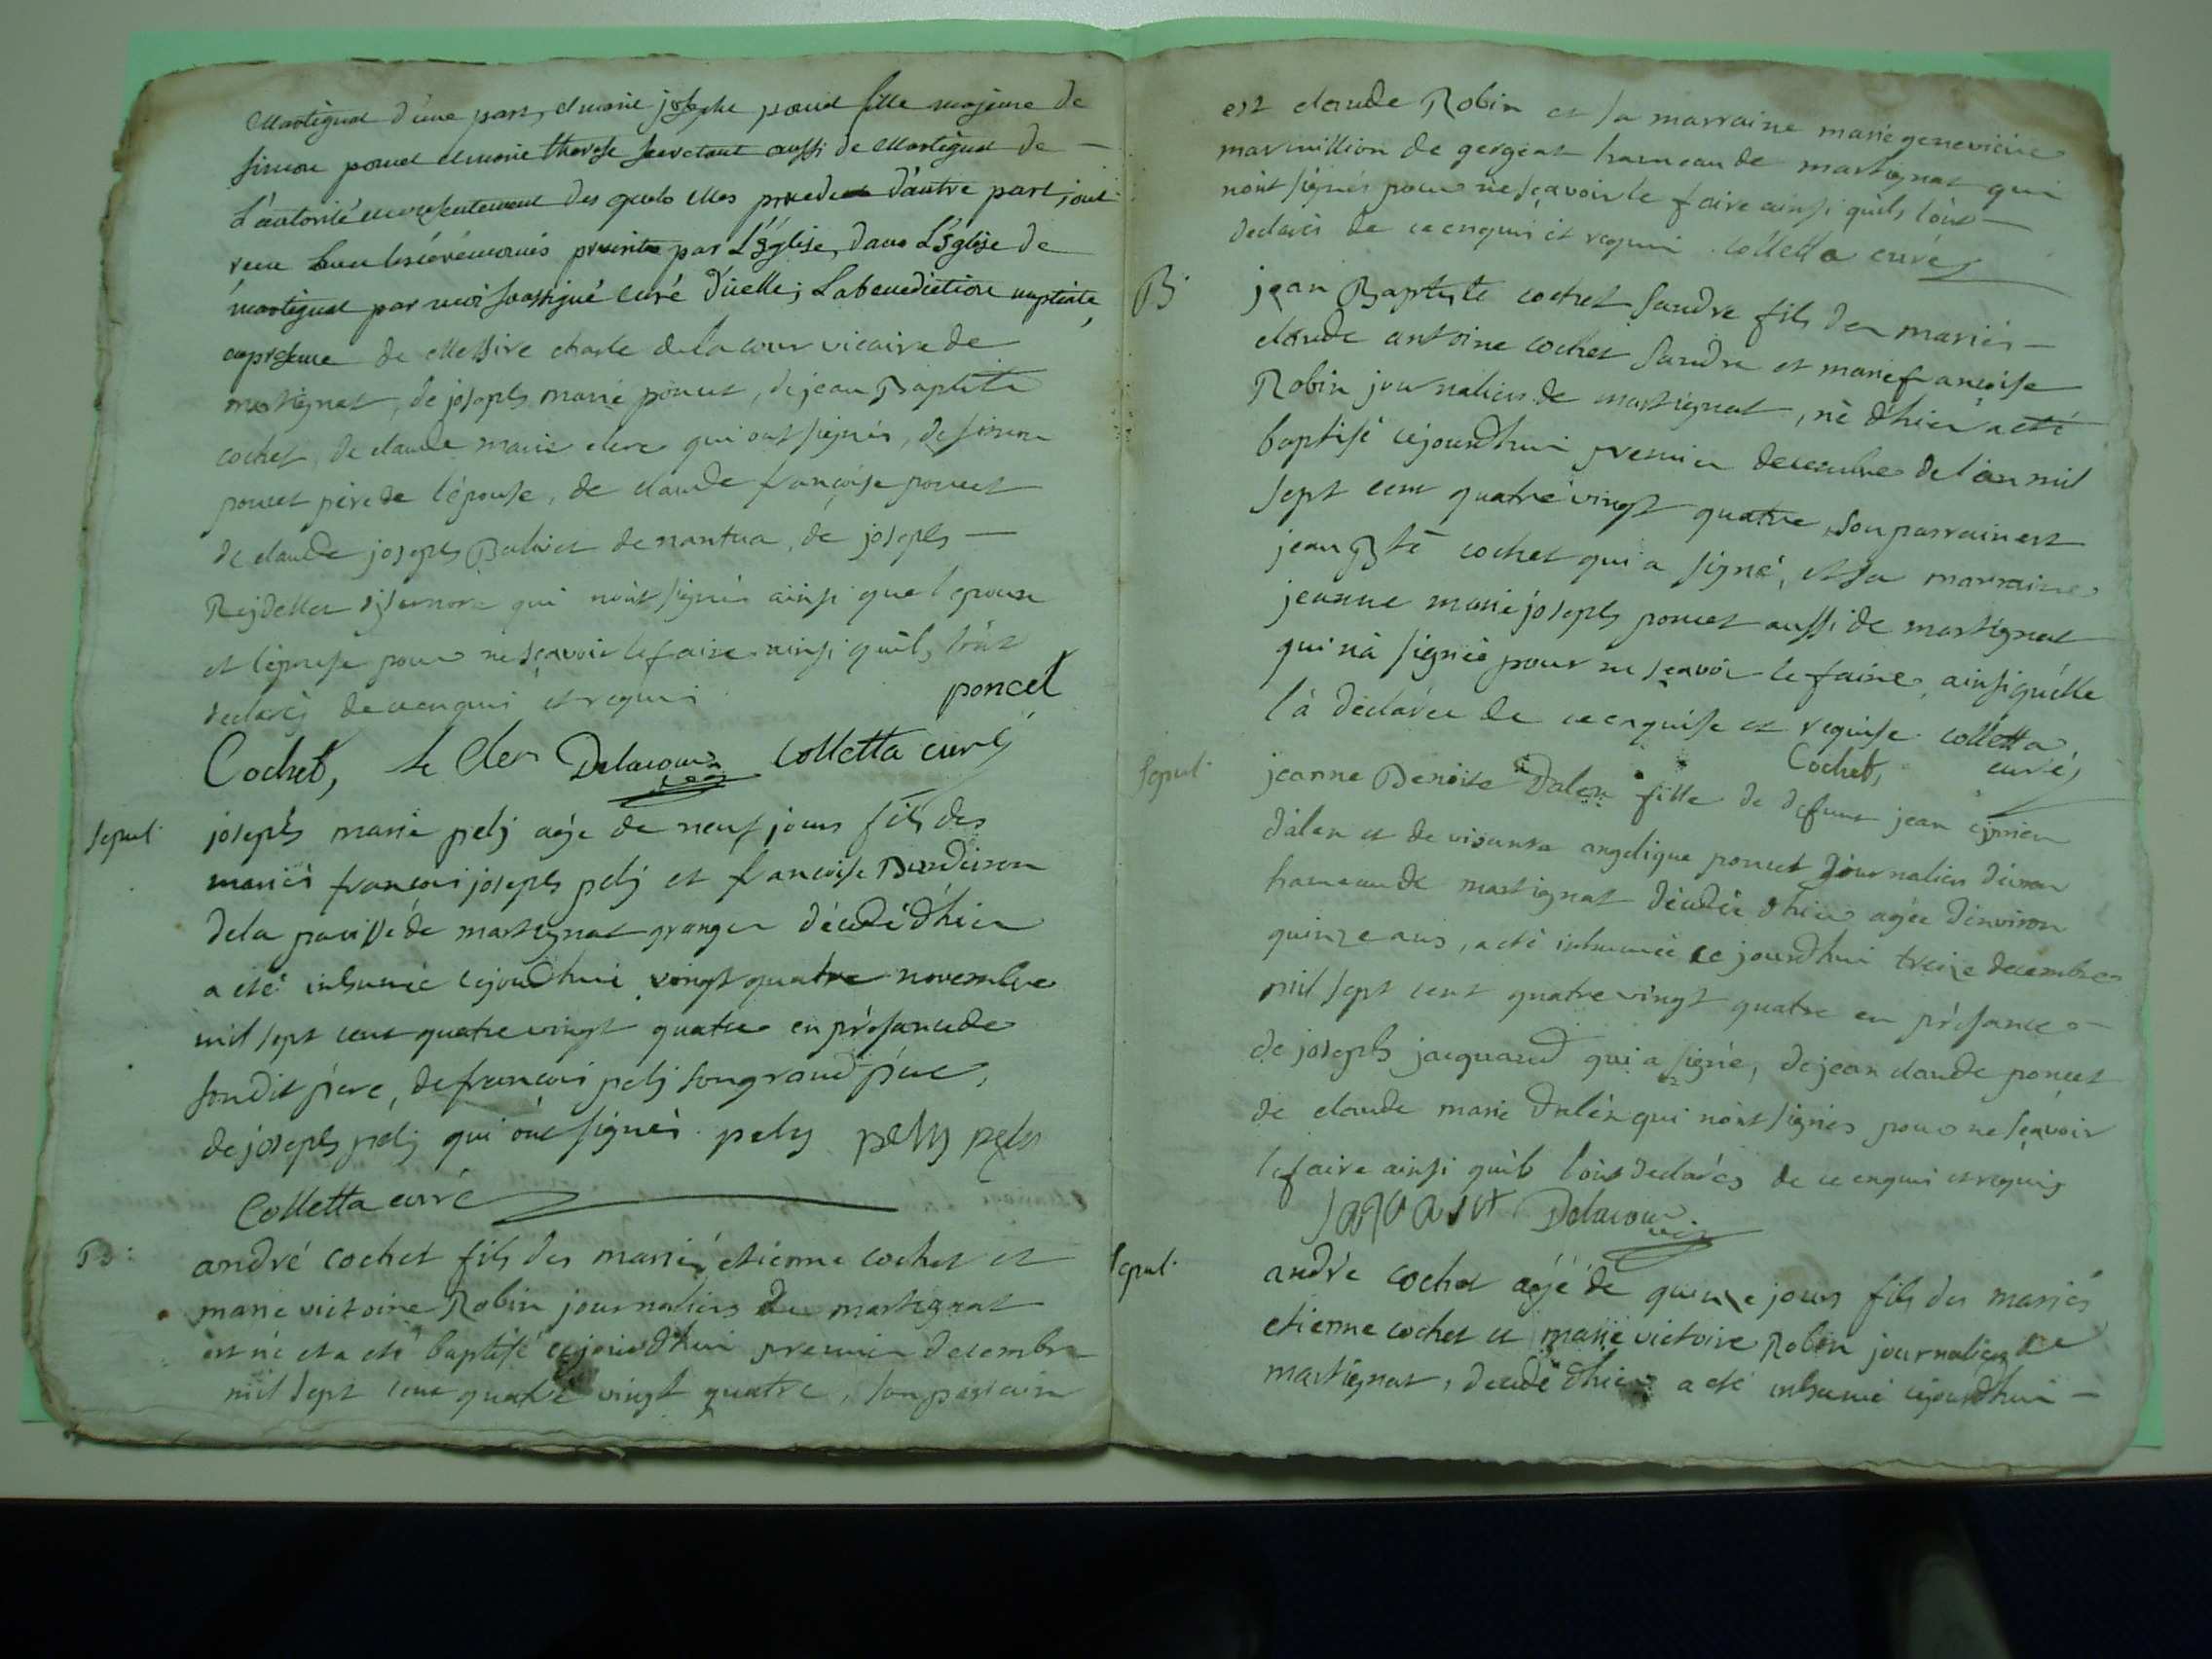 Martignat d'une part, et marie josephe poncet fille majeure de
simon poncet et marie therese servetant aussi de Martignat de —
L'autorité et consentement des quels elles procedent d'autre part, ont
receu suivant les cérémonies prescrites par L'Eglise, dans L'Eglise de
martignat par moi soussigné curé d'icelle; La benediction nuptiale,
en presence de Messire charle delacour vicaire de
martignat, de joseph marie poncet, de jean Baptiste
cochet, de claude marie clerc qui ont signés, de simon
poncet père de l'épouse, de claude françoise poncet
de claude joseph Balivet de nantua, de joseph —
Reydellet qui n'ont signés ainsi que l'epoux
et l'épouse pour ne sçavoir le faire ainsi qu'ils l'ont
declarés de ce enquis et requis
poncet
Cochet, le Clerc Delacour vic Colletta curé
sepul. joseph marie pely agé de neuf jours fils des
mariés françois joseph pely et françoise
de la parroisse de martignat granger décédé d'hier
a eté inhumé cejourd'hui vingt quatre novembre
mil sept cent quatre vingt quatre en présance de
son dit père, de françois pely son grand père,
de joseph pely qui ont signés. pely pely pely
Colletta curé
B: andré cochet fils des mariés etienne cochet et
marie victoire Robin journaliers de martignat
est né et a eté baptisé cejourd'hui premier decembre
mil sept cent quatre vingt quatre, son parrain
est claude Robin et sa marraine marie genevieve
marmillion de gergeat hameau de martignat qui
n'ont signés pour ne sçavoir le faire ainsi qu'ils l'ont —
declarés de ce enquis et requis. Colletta curé
B. jean Baptiste cochet Sandre fils des mariés —
claude antoine cochet Sandre et marie françoise
Robin journaliers de martignat, né d'hier a eté
baptisé cejourd'hui premier decembre de l'an mil
sept cent quatre vingt quatre, son parrain est
jean Bte cochet qui a signé, et sa marraine
jeanne marie joseph poncet aussi de martignat
qui n'a signée pour ne sçavoir le faire, ainsi qu'elle
l'a déclarée de ce enquise et requise. Colletta,
Cochet, curé
sepul. jeanne Benoite Dalen fille de defunt jean
dalen et de angelique poncet journaliers
hameau de martignat décédée d'hier agée d'environ
quinze ans, a eté inhumée ce jourd'hui treize decembre
mil sept cent quatre vingt quatre en présance —
de joseph jacquand qui a signé, de jean claude poncet
de claude marie dalen qui n'ont signés pour ne sçavoir
le faire ainsi qu'ils l'ont declarés de ce enquis et requis
Delacour vic
sepul. andré cochet agé de quinze jours fils des mariés
etienne cochet et marie victoire Robin journaliers de
martignat, decedé d'hier a eté inhumé cejourd'hui —